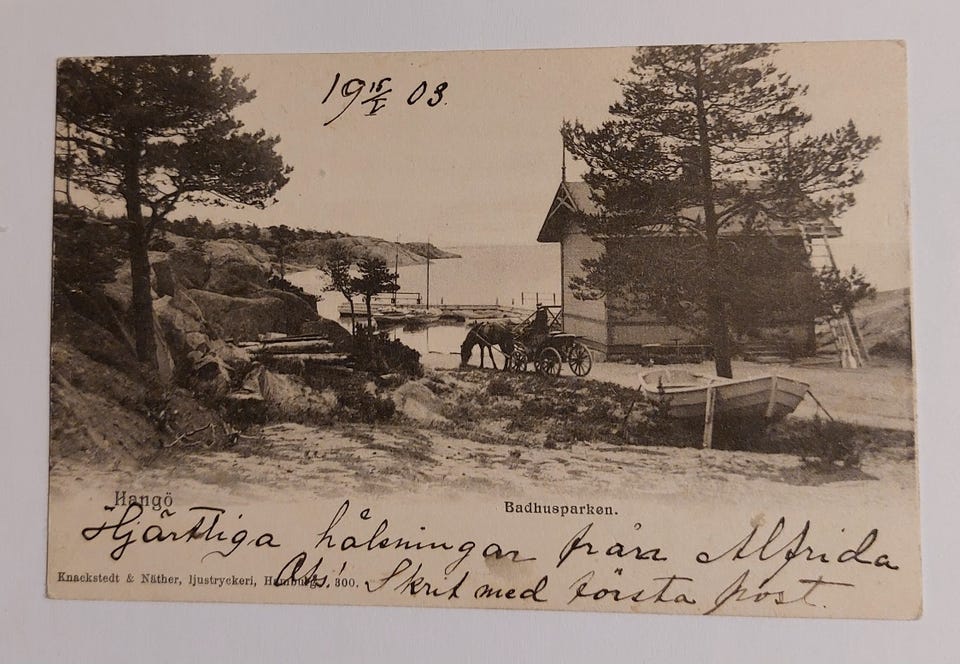 19 15/I 03.
Hangö
Badhusparken.
Hjärtliga hälsningar från Alfrida
Knackstedt & Näther, ljustryckeri, Hamburg. 300.
Obs! Skrif med första post.